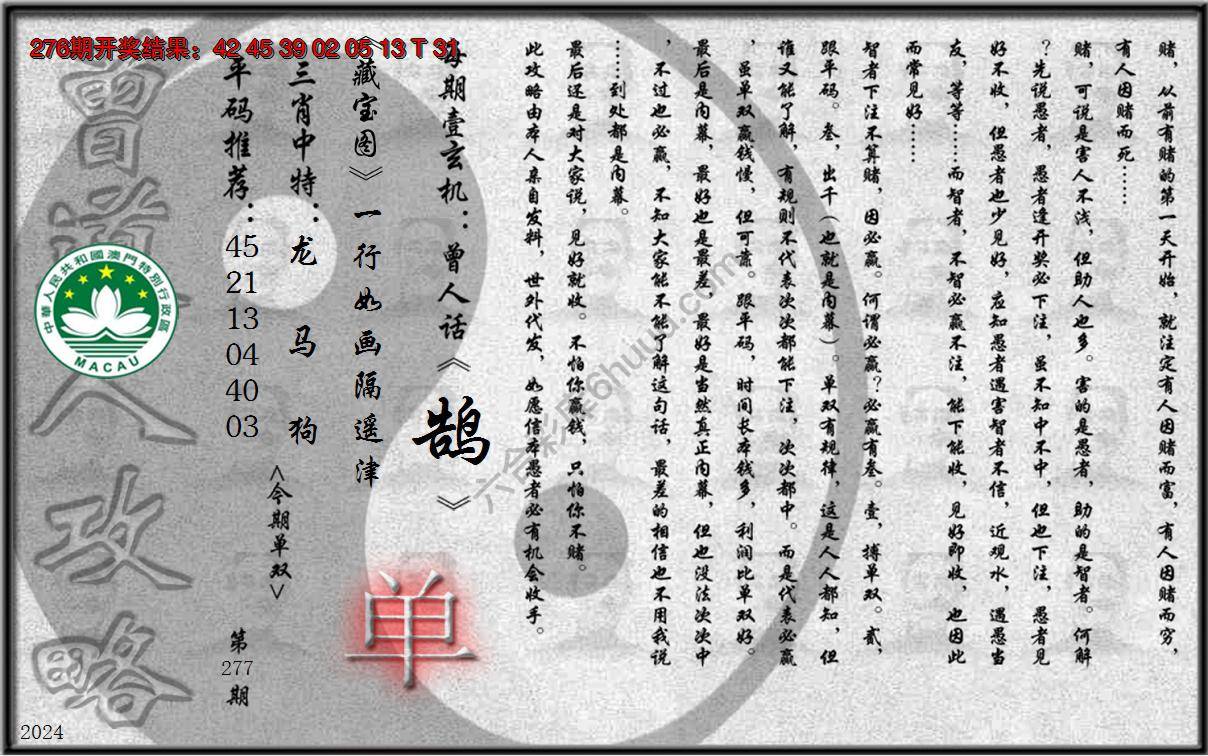 276期开奖结果：42 45 39 02 05 13 T 31
赌，从前有赌的第一天开始，就注定有人因赌而富，有人因赌而穷，
有人因赌而死……
赌，可说是害人不浅，但助人也多。害的是愚者，助的是智者。何解
？先说愚者，愚者逢开奖必下注，虽不知中不中，但也下注，愚者见
好不收，但愚者也少见好，应知愚者遇害智者不信，近观水，遇愚当
友，等等……而智者，不智必赢不注，能下能收，见好即收，也因此
而常见好……
智者下注不算赌，因必赢。何谓必赢？必赢有叁。壹，搏单双。贰，
跟平码。叁，出千（也就是内幕）。单双有规律，这是人人都知，但
谁又能了解，有规则不代表次次都能下注，次次都中。而是代表必赢
，虽单双赢钱慢，但可靠。跟平码，时间长本钱多，利润比单双好。
最后是内幕，最好也是最差，最好是当然真正内幕，但也没法次次中
，不过也必赢，不知大家能不能了解这句话，最差的相信也不用我说
……到处都是内幕。
最后还是对大家说，见好就收。不怕你赢钱，只怕你不赌。
此攻略由本人亲自发料，世外代发，如愿信本愚者必有机会收手。
每期壹玄机：曾人话《鹄》
《藏宝图》一行如画隔遥津
三肖中特：龙 马 狗
平码推荐：45 21 13 04 40 03
<今期单双>
单
第277期
曾道人攻略
中華人民共和國澳門特別行政區
MACAU
六合彩库6huuu.com
2024